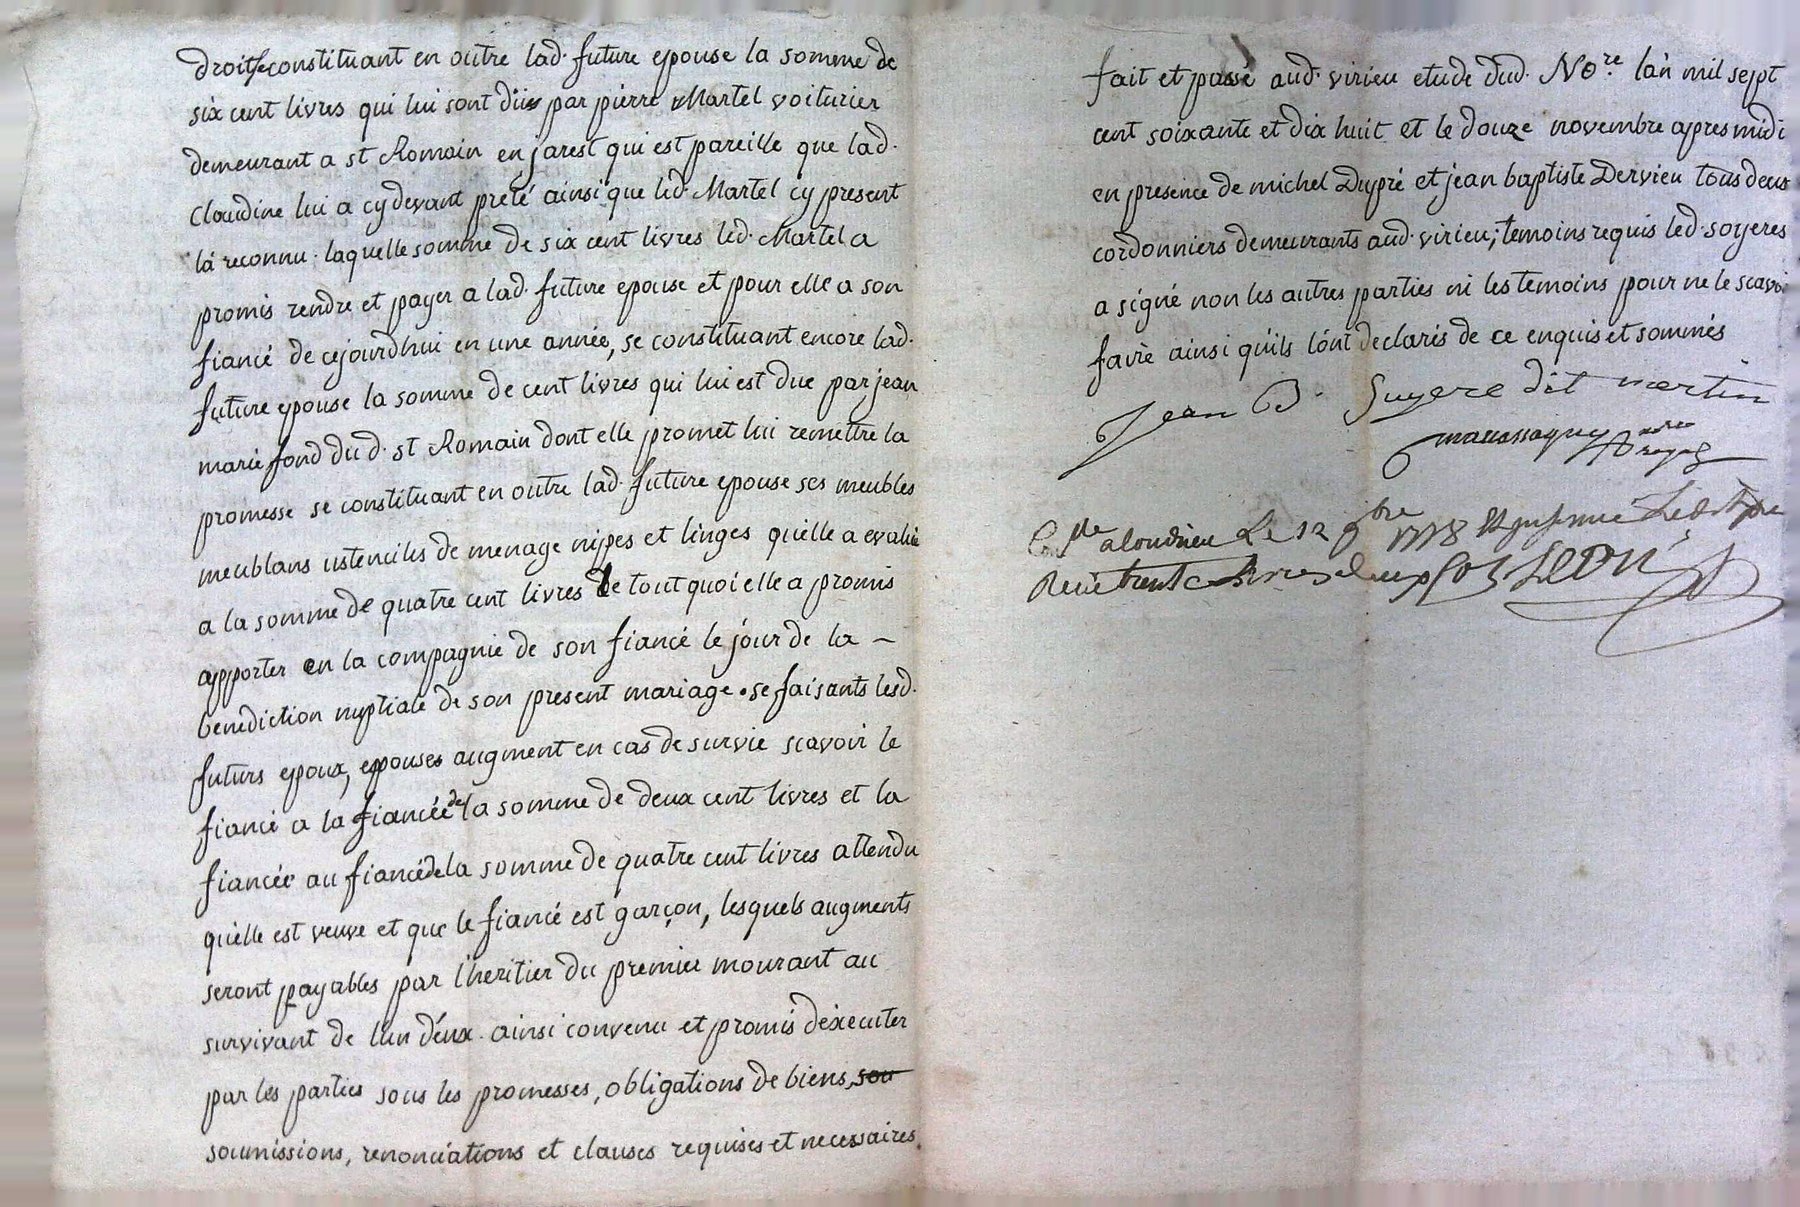 droits se constituant en outre lad. future epouse la somme de
six cent livres qui lui sont düs par pierre Martel voiturier
demeurant a st Romain en jarest qui est pareille que lad.
Claudine lui a cy devant preté ainsi que led. Martel cy present
la reconnu. laquelle somme de six cent livres led. Martel a
promis rendre et payer a lad. future epouse et pour elle a son
fiancé de cejourdhui en une année, se constituant encore lad.
future epouse la somme de cent livres qui lui est due par jean
marie fond dud. st Romain dont elle promet lui remettre la
promesse se constituant en outre lad. future epouse ses meubles
meublans ustenciles de menage nipes et linges quelle a evalué
a la somme de quatre cent livres de tout quoi elle a promis
apporter en la compagnie de son fiancé le jour de la ~
benediction nuptiale de son present mariage. se faisants lesd.
futurs epoux, epouses augment en cas de survie scavoir le
fiancé a la fiancée de la somme de deux cent livres et la
fiancée au fiancé de la somme de quatre cent livres attendu
quelle est veuve et que le fiancé est garçon, lesquels augments
seront payables par l'heritier du premier mourant au
survivant de lun d'eux. ainsi convenu et promis d'executer
par les parties sous les promesses, obligations de biens, sou
soumissions, renonciations et clauses requises et necessaires.
fait et passé aud. virieu etude dud. No.re lan mil sept
cent soixante et dix huit et le douze novembre apres midi
en presence de michel Dupré et jean baptiste Dervieu tous deux
cordonniers demeurants aud. virieu; temoins requis led. soyeres
a signé non les autres parties ni les temoins pour ne le scavoir
faire ainsi qu'ils l'ont declarés de ce enquis et sommés
Jean B. Suyere dit martin
royal
a Condrieu Le 12 9bre 1778
Recu trente livres deux sols Leon